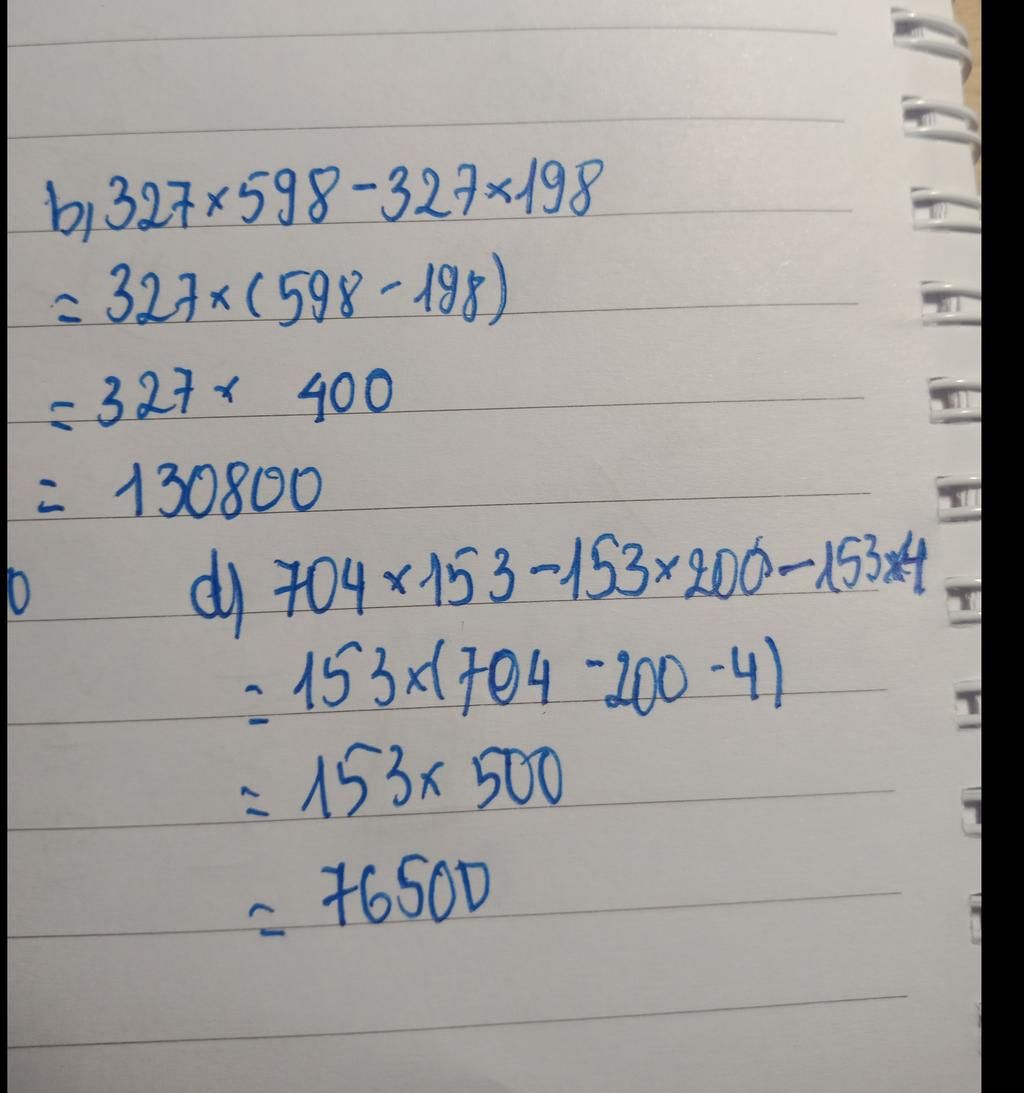 b, 327 × 598 - 327 × 198
= 327 × ( 598 - 198 )
= 327 × 400
= 130800
0 d) 704 × 153 - 153 × 200 - 153 × 4
= 153 × ( 704 - 200 - 4 )
= 153 × 500
= 76500